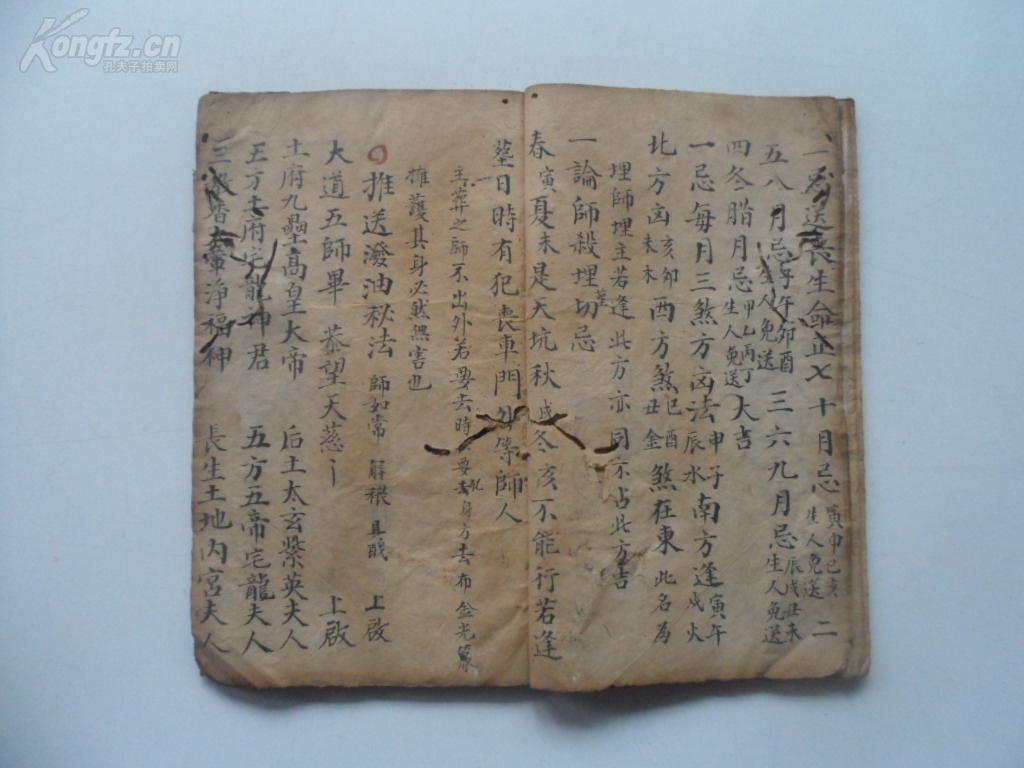 Kongfz.cn
孔夫子拍卖网
一 送喪生命正七十月忌寅申巳亥生人免送 二
五八月忌子午卯酉生人免送 三六九月忌辰戌丑未生人免送
四冬腊月忌甲乙丙丁生人免送 大吉
一忌每月三煞方凶法申子辰水南方逢寅午戌火
北方凶亥卯未木西方煞巳酉丑金煞在東此名為
埋師埋主若逢此方亦同不占此方吉
一論師殺埋切忌
春寅夏未是天坑秋戌冬亥不能行若逢
葬日時有犯喪車門外等師人
主葬之師不出外若要去時 要去身方去布金光篆
推護其身必然無害也
推送潑油秘法 師如常 解穢 具職 上啟
大道五師畢 恭望天慈 上啟
土府九壘高皇大帝 后土太玄紫英夫人
五方土府宅龍神君 五方五帝宅龍夫人
三 淨福神 長生土地內宮夫人